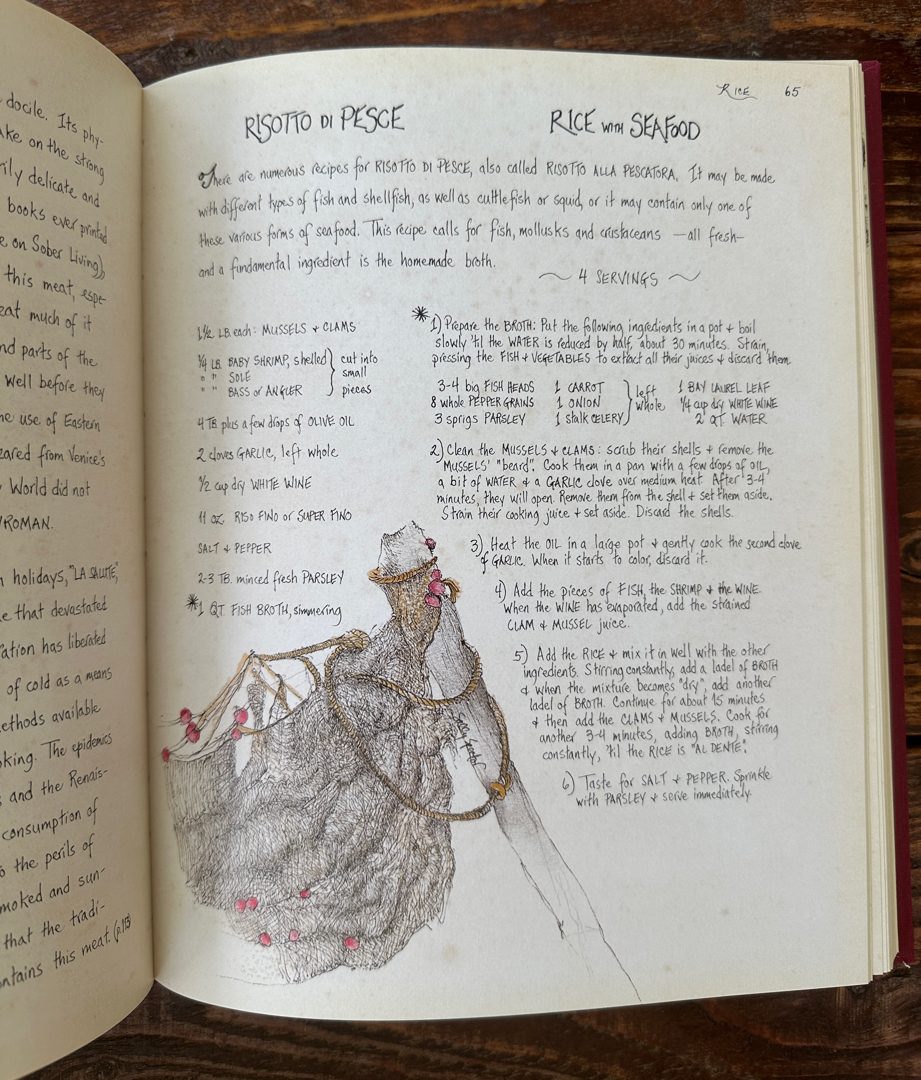 docile. Its phy-
ake on the strong
rily delicate and
books ever printed
e on Sober Living),
this meat, espe-
eat much of it
nd parts of the
well before they
he use of Eastern
eared from Venice's
World did not
YROMAN.
n holidays, "LA SALUTE,"
e that devastated
ration has liberated
of cold as a means
ethods available
oking. The epidemics
s and the Renais-
consumption of
o the perils of
moked and sun-
that the tradi-
ontains this meat. (p.113)
RICE 65
RISOTTO DI PESCE
RICE WITH SEAFOOD
There are numerous recipes for RISOTTO DI PESCE, also called RISOTTO ALLA PESCATORA. It may be made
with different types of fish and shellfish, as well as cuttlefish or squid, or it may contain only one of
these various forms of seafood. This recipe calls for fish, mollusks and crustaceans —all fresh—
and a fundamental ingredient is the homemade broth.
~ 4 SERVINGS ~
1½ LB. each: MUSSELS + CLAMS
¼ LB. BABY SHRIMP, shelled } cut into
" " SOLE small
" " BASS or ANGLER pieces
4 TB plus a few drops of OLIVE OIL
2 cloves GARLIC, left whole
½ cup dry WHITE WINE
11 oz. RISO FINO or SUPER FINO
SALT + PEPPER
2-3 TB. minced fresh PARSLEY
*1 QT. FISH BROTH, simmering
* 1) Prepare the BROTH: Put the following ingredients in a pot + boil
slowly 'til the WATER is reduced by half, about 30 minutes. Strain,
pressing the FISH + VEGETABLES to extract all their juices + discard them.
3-4 big FISH HEADS 1 CARROT } left 1 BAY LAUREL LEAF
8 whole PEPPER GRAINS 1 ONION whole ¼ cup dry WHITE WINE
3 sprigs PARSLEY 1 stalk CELERY 2 QT. WATER
2) Clean the MUSSELS + CLAMS: scrub their shells + remove the
MUSSELS' "beard". Cook them in a pan with a few drops of OIL,
a bit of WATER + a GARLIC clove over medium heat. After 3-4
minutes, they will open. Remove them from the shell + set them aside.
Strain their cooking juice + set aside. Discard the shells.
3) Heat the OIL in a large pot + gently cook the second clove
of GARLIC. When it starts to color, discard it.
4) Add the pieces of FISH, the SHRIMP + the WINE.
When the WINE has evaporated, add the strained
CLAM + MUSSEL juice.
5) Add the RICE + mix it in well with the other
ingredients. Stirring constantly, add a ladel of BROTH
+ when the mixture becomes "dry", add another
ladel of BROTH. Continue for about 15 minutes
+ then add the CLAMS + MUSSELS. Cook for
another 3-4 minutes, adding BROTH, stirring
constantly, 'til the RICE is "AL DENTE".
6) Taste for SALT + PEPPER. Sprinkle
with PARSLEY + serve immediately.